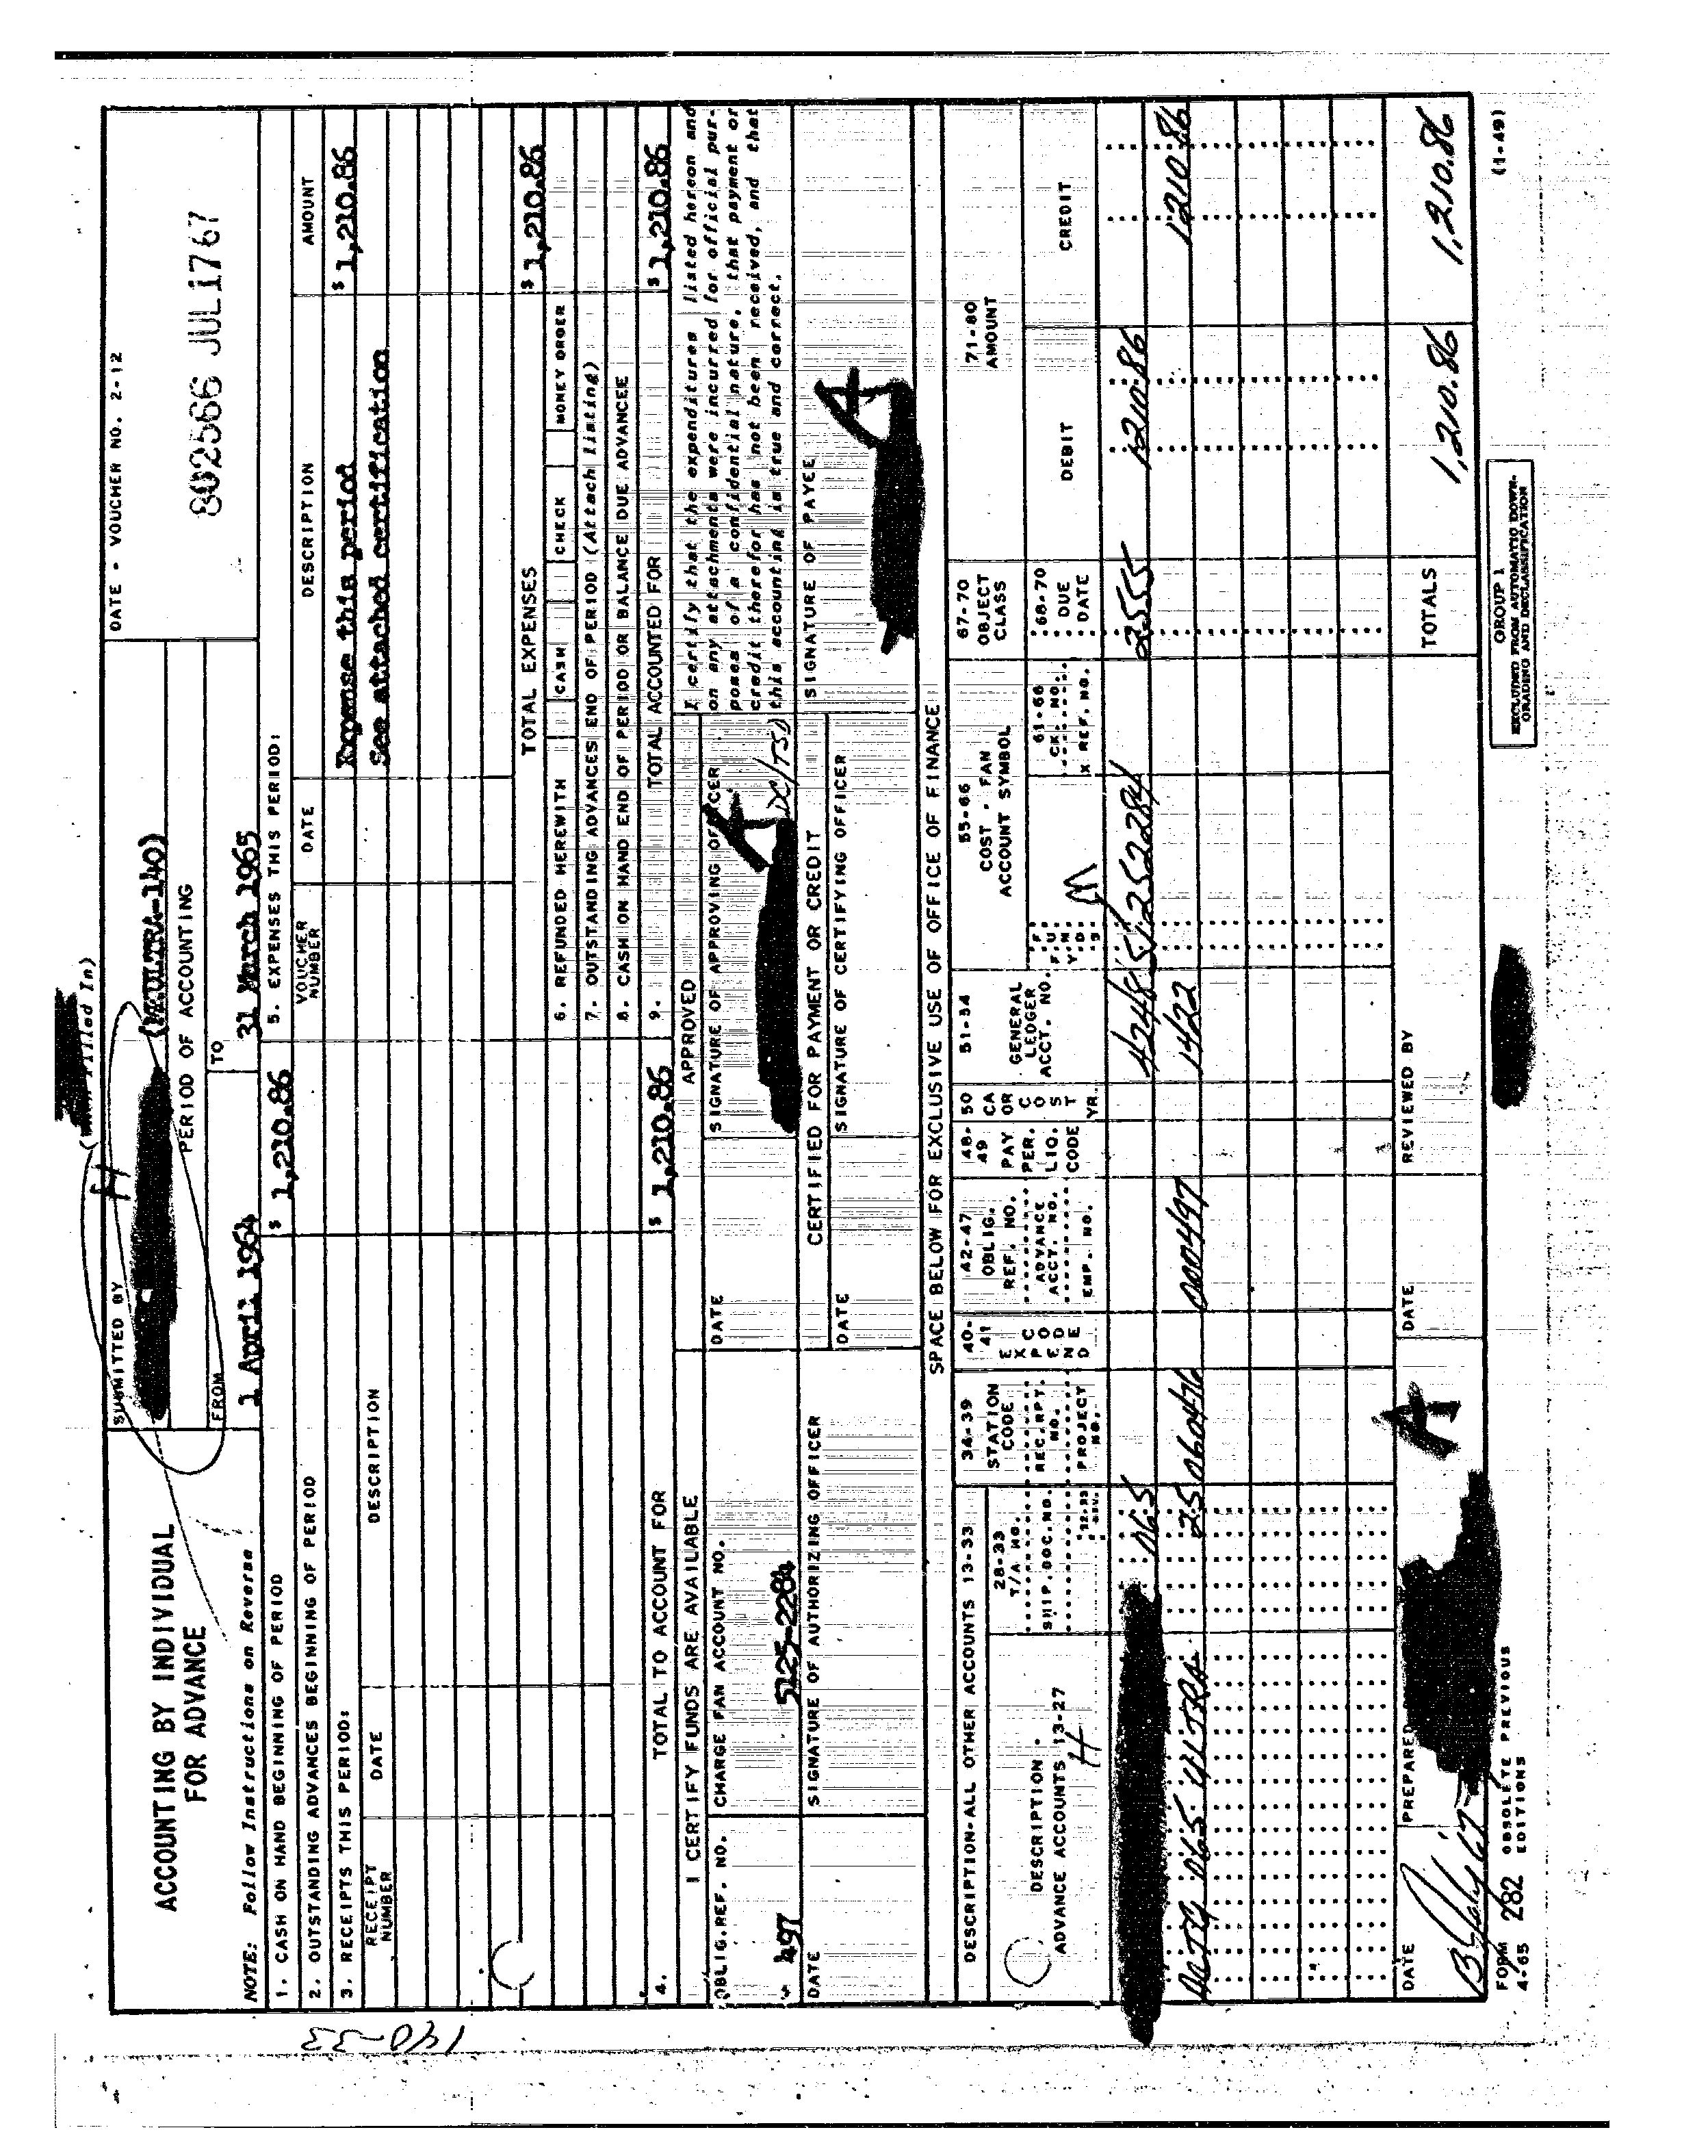 (When Filled In)
ACCOUNTING BY INDIVIDUAL
FOR ADVANCE
NOTE: Follow Instructions on Reverse
SUBMITTED BY
H
(MKULTRA-140)
PERIOD OF ACCOUNTING
FROM
1 April 1964
TO
31 March 1965
DATE - VOUCHER NO. 2-12
802566 JUL 17 67
1. CASH ON HAND BEGINNING OF PERIOD
$ 1,210.86
2. OUTSTANDING ADVANCES BEGINNING OF PERIOD
3. RECEIPTS THIS PERIOD:
RECEIPT NUMBER
DATE
DESCRIPTION
5. EXPENSES THIS PERIOD:
VOUCHER NUMBER
DATE
DESCRIPTION
AMOUNT
Expense this period
$ 1,210.86
See attached certification
TOTAL EXPENSES
$ 1,210.86
6. REFUNDED HEREWITH
CASH
CHECK
MONEY ORDER
7. OUTSTANDING ADVANCES END OF PERIOD (Attach listing)
8. CASH ON HAND END OF PERIOD OR BALANCE DUE ADVANCEE
4. TOTAL TO ACCOUNT FOR
$ 1,210.86
9. TOTAL ACCOUNTED FOR
$ 1,210.86
I CERTIFY FUNDS ARE AVAILABLE
OBLIG.REF. NO.
497
CHARGE FAN ACCOUNT NO.
5125-2284
DATE
SIGNATURE OF AUTHORIZING OFFICER
APPROVED
DATE
SIGNATURE OF APPROVING OFFICER
A
DC/TSD
CERTIFIED FOR PAYMENT OR CREDIT
DATE
SIGNATURE OF CERTIFYING OFFICER
I certify that the expenditures listed hereon and
on any attachments were incurred for official pur-
poses of a confidential nature, that payment or
credit therefor has not been received, and that
this accounting is true and correct.
SIGNATURE OF PAYEE
A
SPACE BELOW FOR EXCLUSIVE USE OF OFFICE OF FINANCE
DESCRIPTION-ALL OTHER ACCOUNTS 13-33
DESCRIPTION -
ADVANCE ACCOUNTS 13-27
H
28-33
T/A NO.
SHIP.DOC.NO.
34-39
STATION
CODE
REC.RPT.
NO.
PROJECT
NO.
40-
41
EXPEND
CODE
42-47
OBLIG.
REF. NO.
ADVANCE
ACCT. NO.
EMP. NO.
48-
49
PAY
PER.
LIQ.
CODE
50
CA
OR
COST
YR.
51-54
GENERAL
LEDGER
ACCT. NO.
55-66
COST - FAN
ACCOUNT SYMBOL
61-66
CK. NO.
X REF. NO.
67-70
OBJECT
CLASS
68-70
DUE
DATE
71-80
AMOUNT
DEBIT
CREDIT
065
4248
51252284
2555
1210.86
25
060476
000497
1422
1210.86
DATE
13 July 67
PREPARED
A
DATE
REVIEWED BY
TOTALS
1,210.86
1,210.86
FORM 282 OBSOLETE PREVIOUS
4-65 EDITIONS
GROUP 1
EXCLUDED FROM AUTOMATIC DOWN-
GRADING AND DECLASSIFICATION
(1-49)
140-33